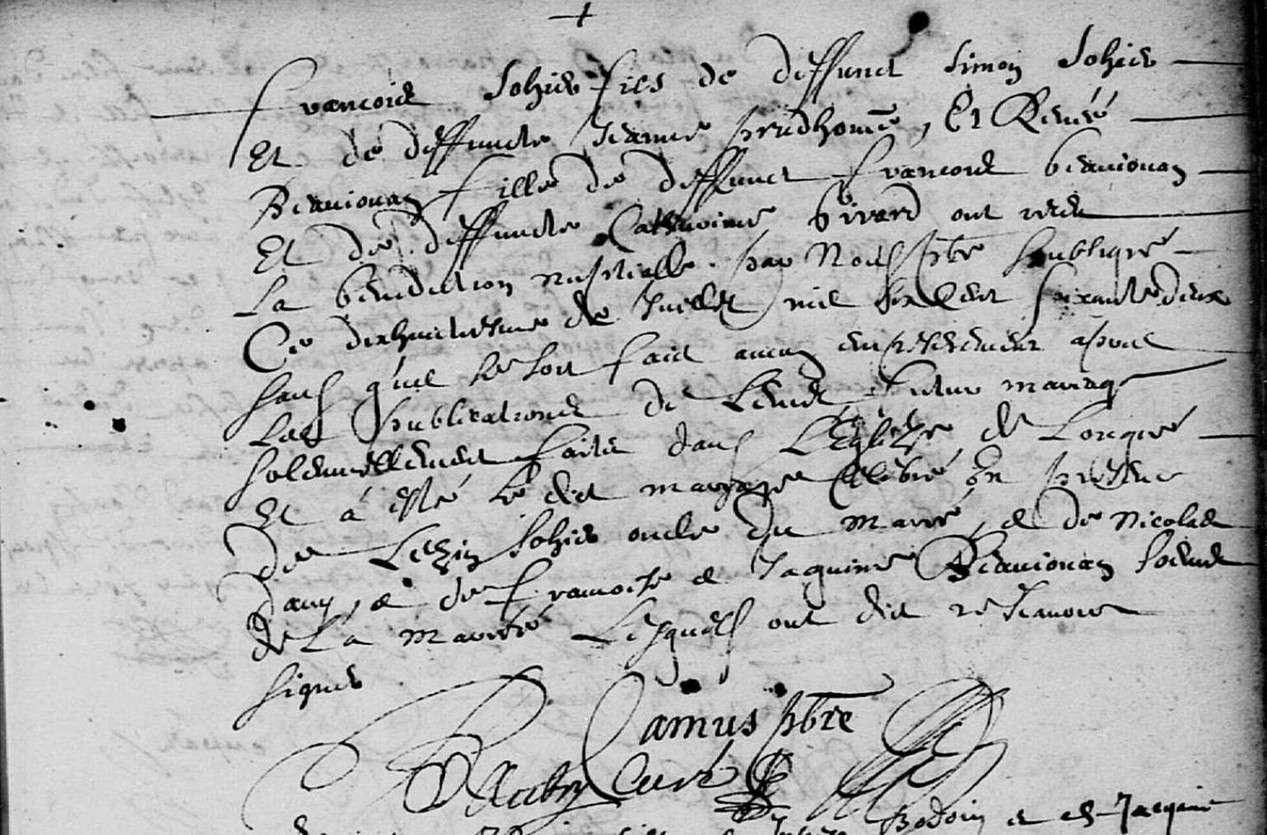 francois Sohier fils de deffunct Simon Sohier
Et de deffuncte Jeanne prudhome, Et Renée
Beaujouan fille de deffunct francois beaujouan
Et de deffuncte Catherine bivard ont receu
La benediction nuptialle par Nous pbre
Ce dixhuitiesme de Juillet mil six Cent soixante deux
sans qu'il se soit faict aucun empeschement apres
Les publications de Leur futur mariage
solemnellement faites dans L'Eglize de Longué
Et à esté le dit mariage Celebré En presence
De Lezin Sohier oncle du marié, & de Nicolas
& de francoise & Jaquine Beaujouan soeurs
de La mariée Lesquels ont dit ne scavoir
signer
Camus pbre
Curé
Bodoin et de Jacquine